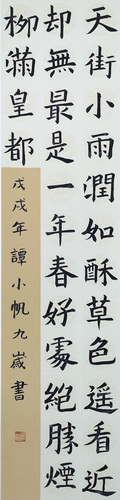 天街小雨潤如酥草色遥看近
却無最是一年春好處絕勝煙
柳滿皇都
戊戌年譚小帆九歲書